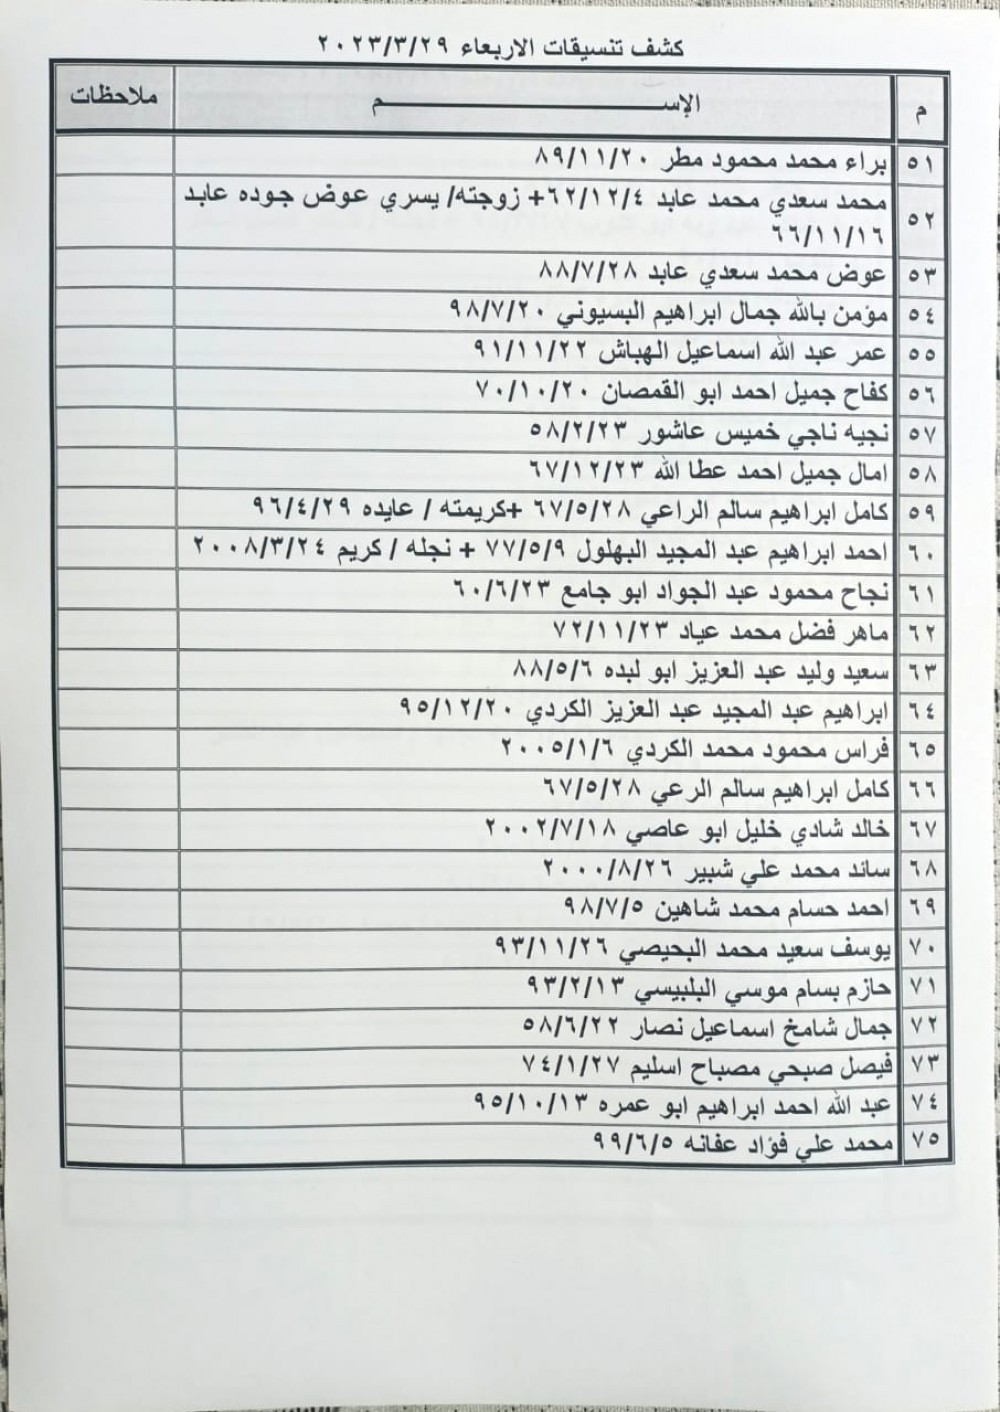 كشف تنسيقات الاربعاء ٢٠٢٣/٣/٢٩
م الإســـــــــــــــــــــم ملاحظات
٥١ براء محمد محمود مطر ٨٩/١١/٢٠
٥٢ محمد سعدي محمد عابد ٦٢/١٢/٤+ زوجته/ يسري عوض جوده عابد
٦٦/١١/١٦
٥٣ عوض محمد سعدي عابد ٨٨/٧/٢٨
٥٤ مؤمن بالله جمال ابراهيم البسيوني ٩٨/٧/٢٠
٥٥ عمر عبد الله اسماعيل الهباش ٩١/١١/٢٢
٥٦ كفاح جميل احمد ابو القمصان ٧٠/١٠/٢٠
٥٧ نجيه ناجي خميس عاشور ٥٨/٢/٢٣
٥٨ امال جميل احمد عطا الله ٦٧/١٢/٢٣
٥٩ كامل ابراهيم سالم الراعي ٦٧/٥/٢٨ +كريمته / عايده ٩٦/٤/٢٩
٦٠ احمد ابراهيم عبد المجيد البهلول ٧٧/٥/٩ + نجله / كريم ٢٠٠٨/٣/٢٤
٦١ نجاح محمود عبد الجواد ابو جامع ٦٠/٦/٢٣
٦٢ ماهر فضل محمد عياد ٧٢/١١/٢٣
٦٣ سعيد وليد عبد العزيز ابو لبده ٨٨/٥/٦
٦٤ ابراهيم عبد المجيد عبد العزيز الكردي ٩٥/١٢/٢٠
٦٥ فراس محمود محمد الكردي ٢٠٠٥/١/٦
٦٦ كامل ابراهيم سالم الرعي ٦٧/٥/٢٨
٦٧ خالد شادي خليل ابو عاصي ٢٠٠٢/٧/١٨
٦٨ سائد محمد علي شبير ٢٠٠٠/٨/٢٦
٦٩ احمد حسام محمد شاهين ٩٨/٧/٥
٧٠ يوسف سعيد محمد البحيصي ٩٣/١١/٢٦
٧١ حازم بسام موسي البلبيسي ٩٣/٢/١٣
٧٢ جمال شامخ اسماعيل نصار ٥٨/٦/٢٢
٧٣ فيصل صبحي مصباح اسليم ٧٤/١/٢٧
٧٤ عبد الله احمد ابراهيم ابو عمره ٩٥/١٠/١٣
٧٥ محمد علي فؤاد عفانه ٩٩/٦/٥